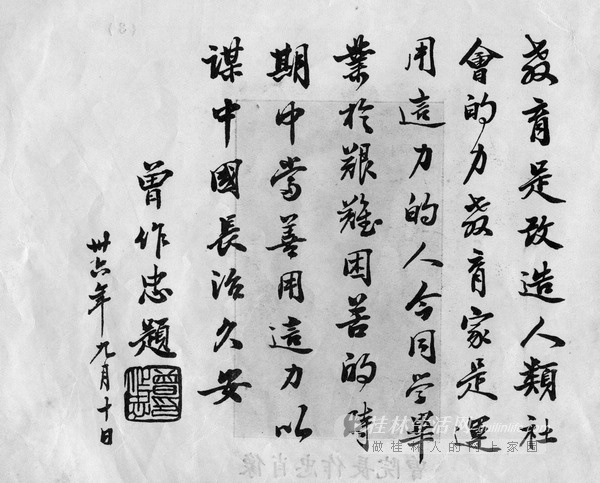 教育是改造人類社
會的力教育家是運
用這力的人今同學畢
業於艱難困苦的時
期中當善用這力以
謀中國長治久安
曾作忠題
卅六年九月十日
曾作忠
桂林生活网
guilinlife.com
做桂林人的网上家园
曾院長作忠肖像
(8)